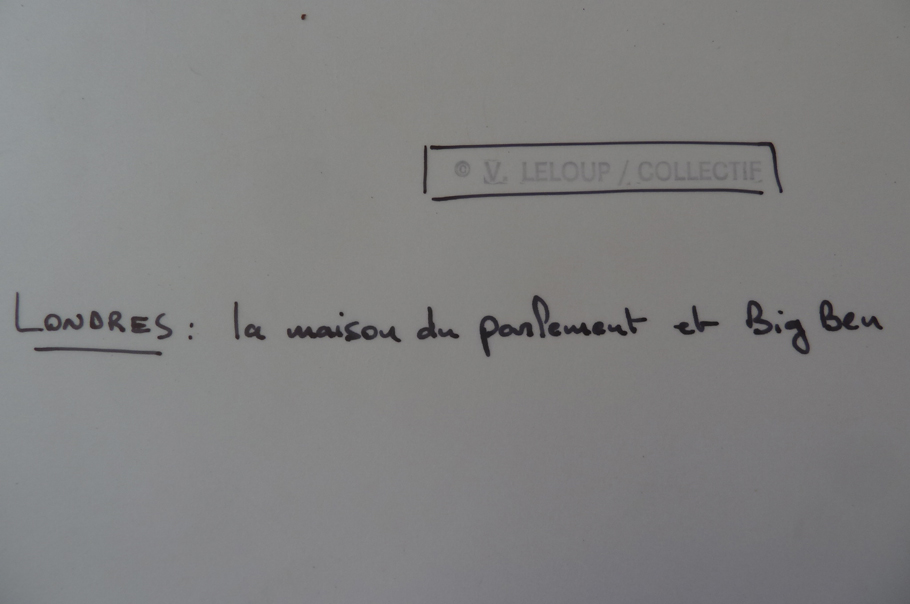 © V. LELOUP / COLLECTIF
LONDRES : la maison du parlement et Big Ben